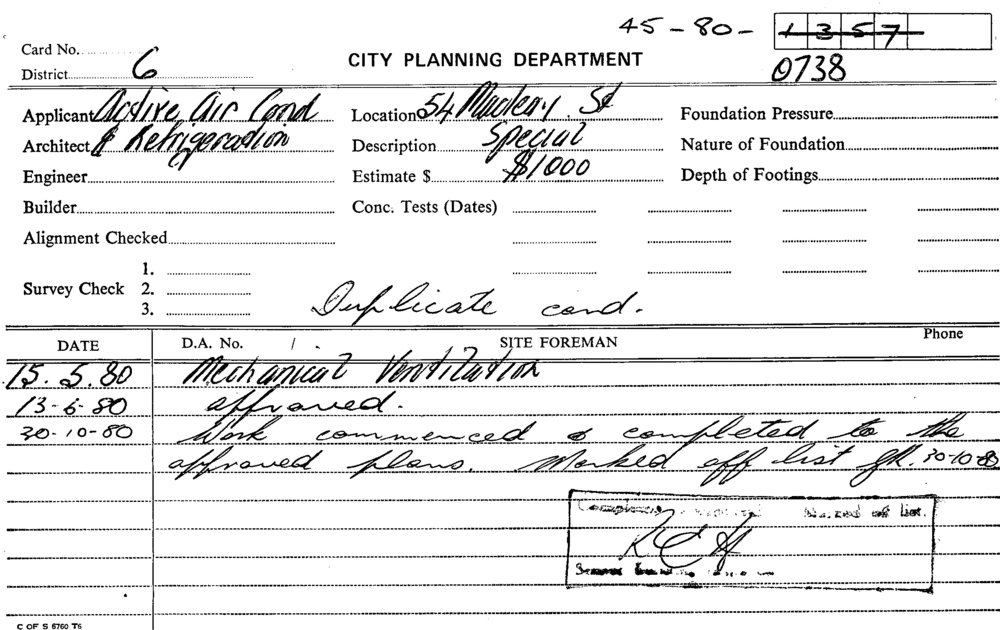 45-80- 1357
Card No.
District 6
CITY PLANNING DEPARTMENT
0738
Applicant Active Air Cond
Location 54 Macleay St
Foundation Pressure
Architect & Refrigeration
Description Special
Nature of Foundation
Engineer
Estimate $ $1000
Depth of Footings
Builder
Conc. Tests (Dates)
Alignment Checked
Survey Check 1.
2.
3.
Duplicate card.
DATE D.A. No. / . SITE FOREMAN Phone
15.5.80 Mechanical Ventilation
13-6-80 approved.
30-10-80 Work commenced & completed to the
approved plans. Marked off list 30-10-80
off list.
C OF S 6760 T6